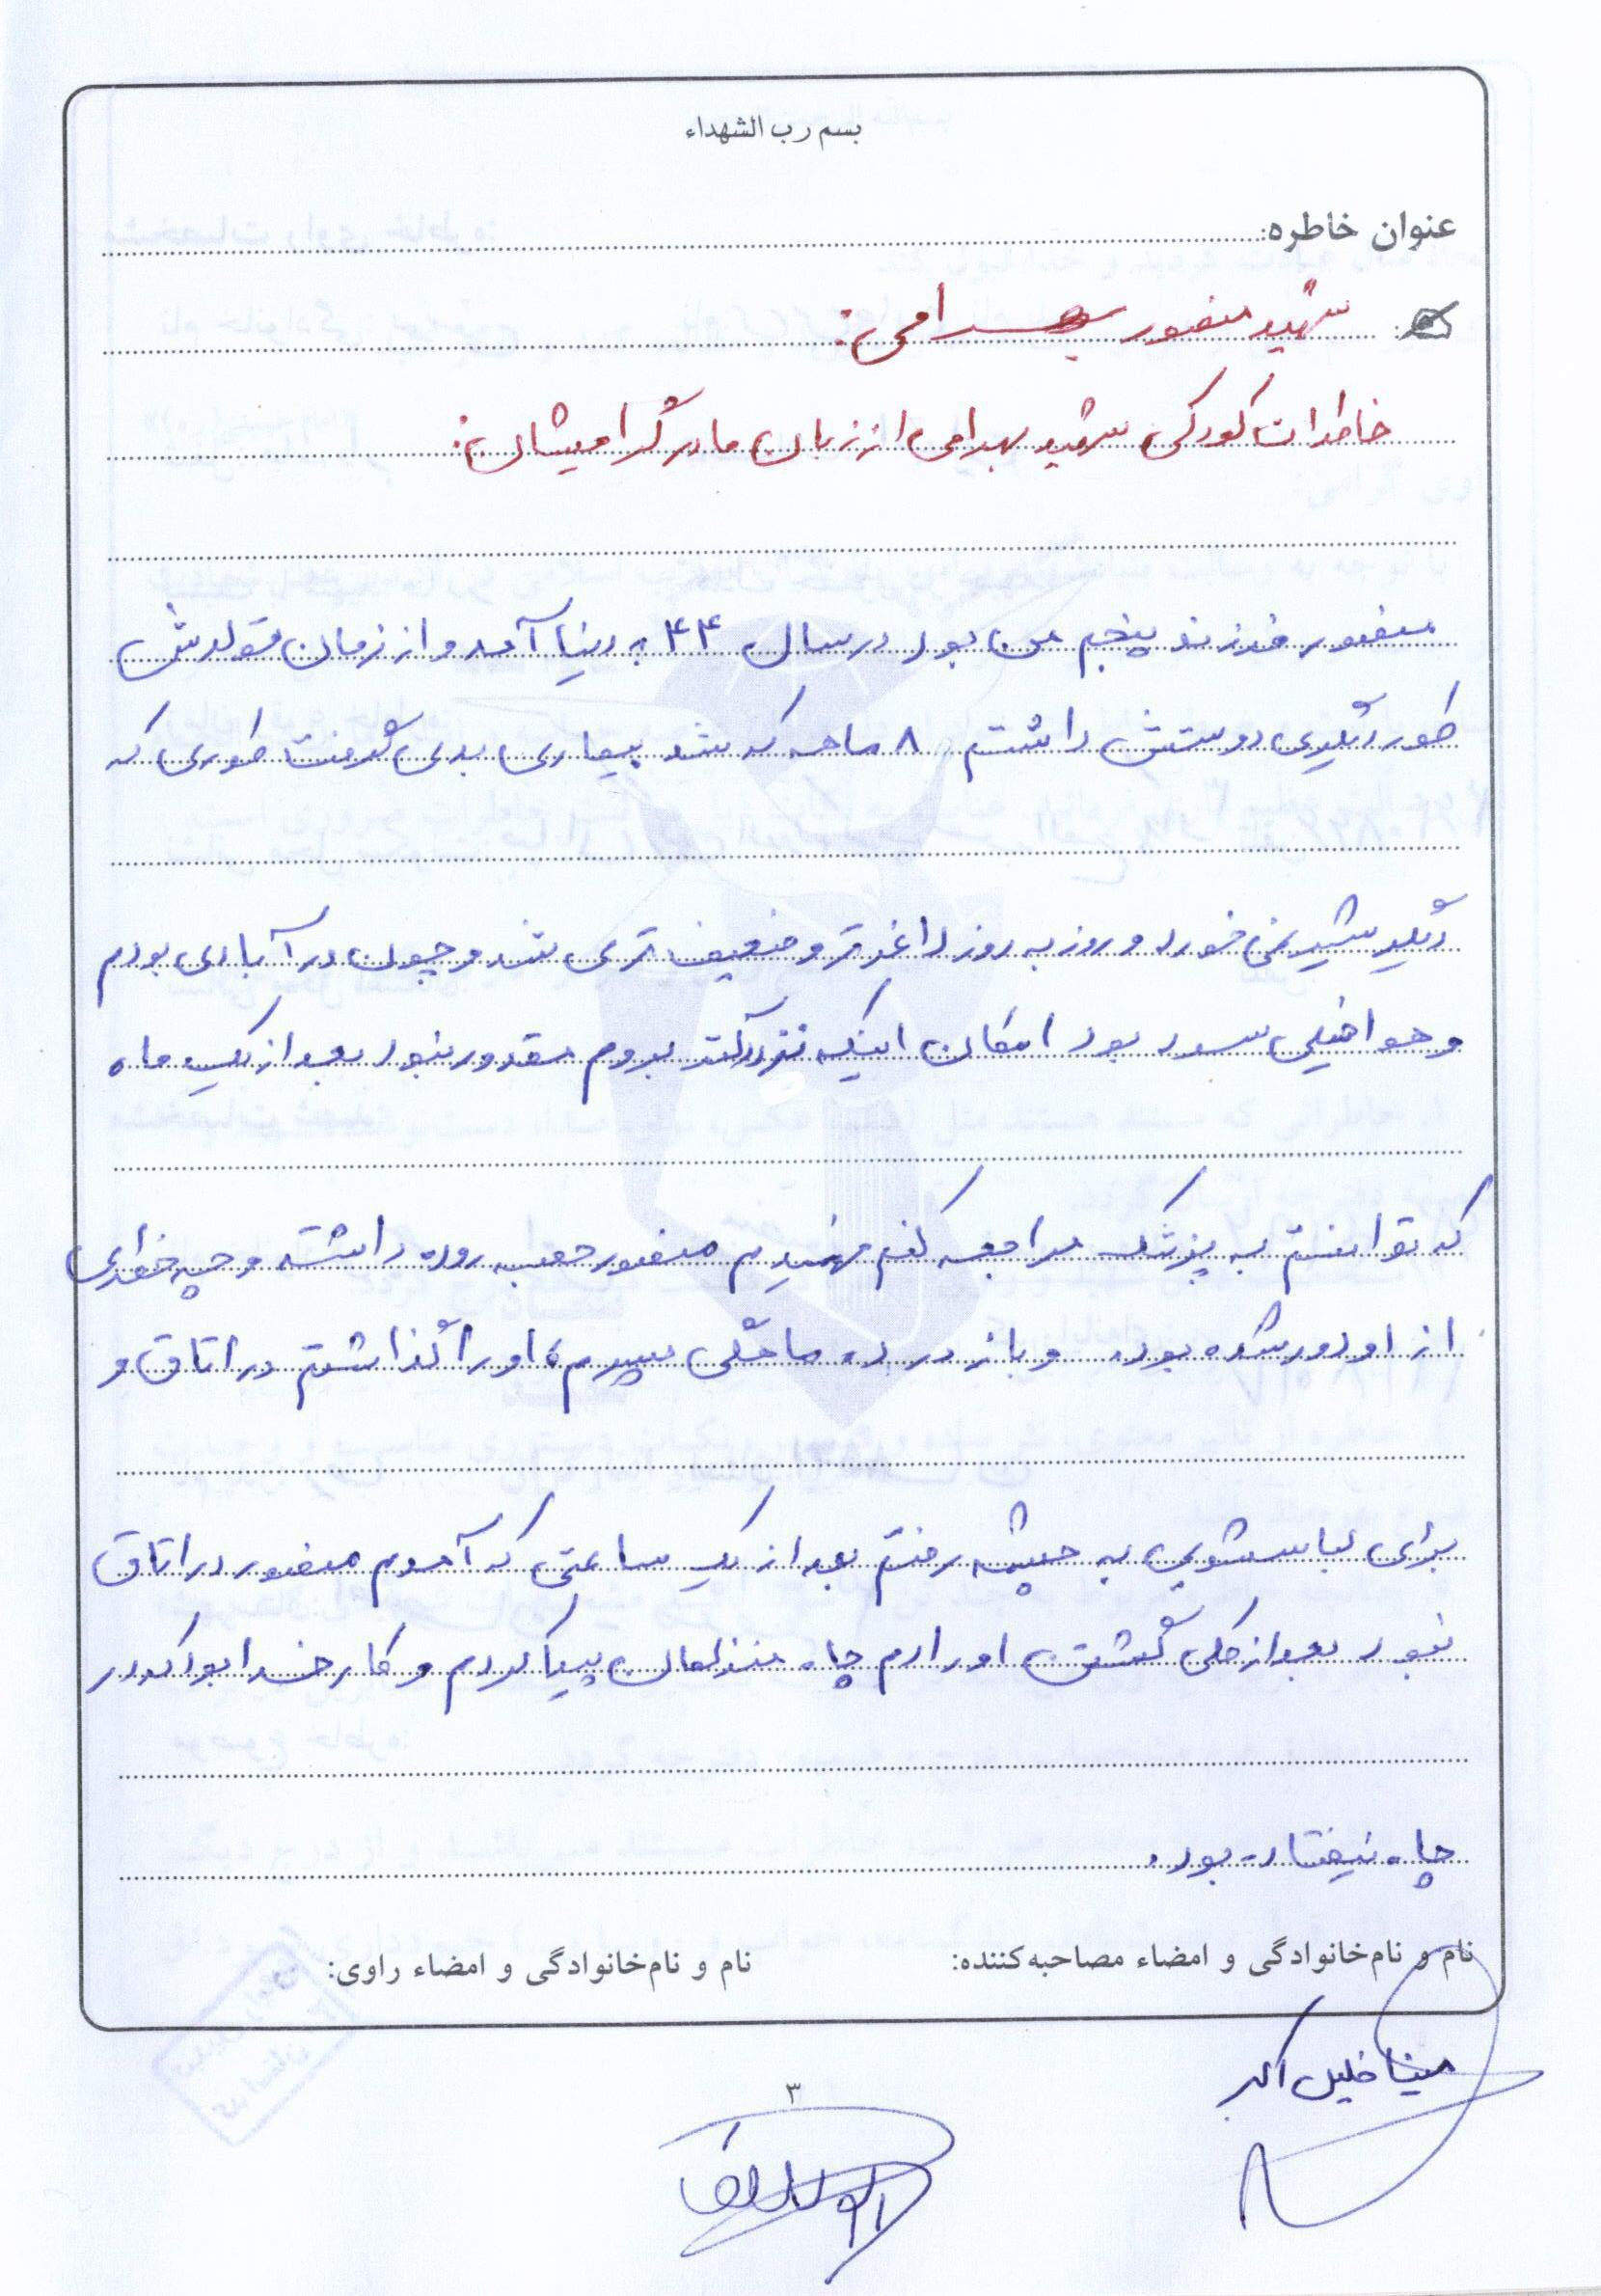 بسم رب الشهداء
عنوان خاطره:
شهید منصور بهرامی:
خاطرات کودکی شهید بهرامی از زبان مادر گرامیشان:
منصور فرزند پنجم من بود در سال ۴۴ به دنیا آمد و از زمان تولدش
طور دیگری دوستش داشتم ۸ ماهه که شد بیماری بدی گرفت طوری که
دیگر شیر نمی خورد و روز به روز لاغرتر و ضعیف تر می شد و چون در آبادی بودم
و هوا خیلی سرد بود امکان اینکه نزد دکتر بروم مقدور نبود بعد از یک ماه
که توانستم به پزشک مراجعه کنم فهمیدم منصور حصبه روده داشته و چه خطری
از او دور شده بود. و باز در ده ماهگی پسرم، او را گذاشتم در اتاق و
برای لباسشویی به چشمه رفتم بعد از یک ساعتی که آمدم منصور در اتاق
نبود بعد از کلی گشتن او را دم چاه منزلمان پیدا کردم و کار خدا بود که در
چاه نیفتاده بود.
نام و نام‌خانوادگی و امضاء مصاحبه‌کننده:
نام و نام‌خانوادگی و امضاء راوی:
مینا خلیل اکبر
۳